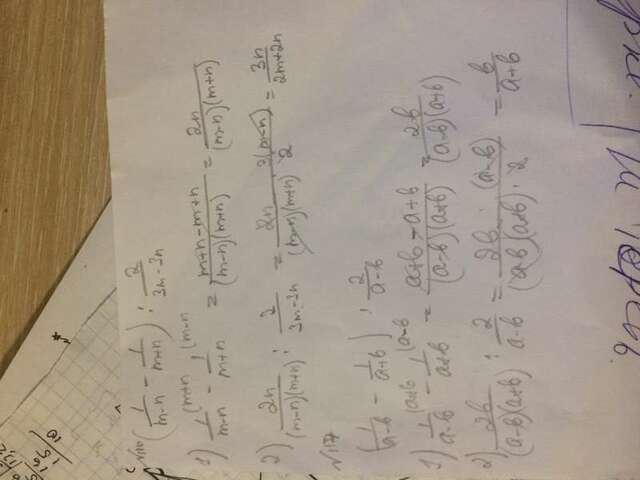 (1/(m-n) - 1/(m+n)) : 2/(3m-3n)
1) 1/(m-n) (m+n - 1/(m+n) (m-n = (m+n-m+n)/((m-n)(m+n)) = 2n/((m-n)(m+n))
2) 2n/((m-n)(m+n)) : 2/(3m-3n) = 2n/((m-n)(m+n)) 3(m-n)/2 = 3n/(2m+2n)
(1/(a-b) - 1/(a+b)) : 2/(a-b)
1) 1/(a-b) (a+b - 1/(a+b) (a-b = (a+b-a+b)/((a-b)(a+b)) = 2b/((a-b)(a+b))
2) 2b/((a-b)(a+b)) : 2/(a-b) = (2b · (a-b))/((a-b)(a+b) · 2) = b/(a+b)